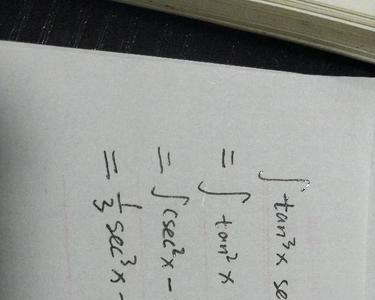 ∫ tan³x se
= ∫ tan²x
= ∫(sec²x −
= 1/3 sec³x −